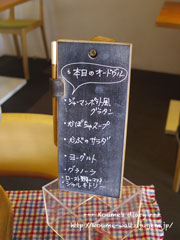 本日のオードヴル
・ジャーマンポテト風
グラタン
・かぼちゃスープ
・かぶのサラダ
・ヨーグルト
・グラノーラ
・ロースト野菜のマリネ
シャルキトリー